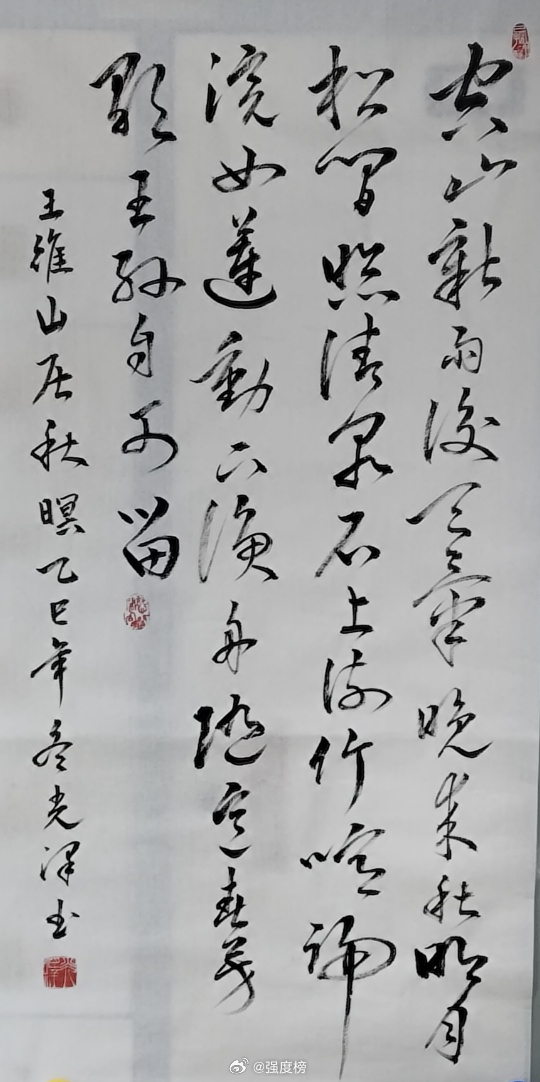 空山新雨後天氣晚來秋明月
松間照清泉石上流竹喧歸
浣女蓮動下漁舟隨意春芳
歇王孫自可留
王維山居秋暝乙巳年冬光澤书
@强度榜